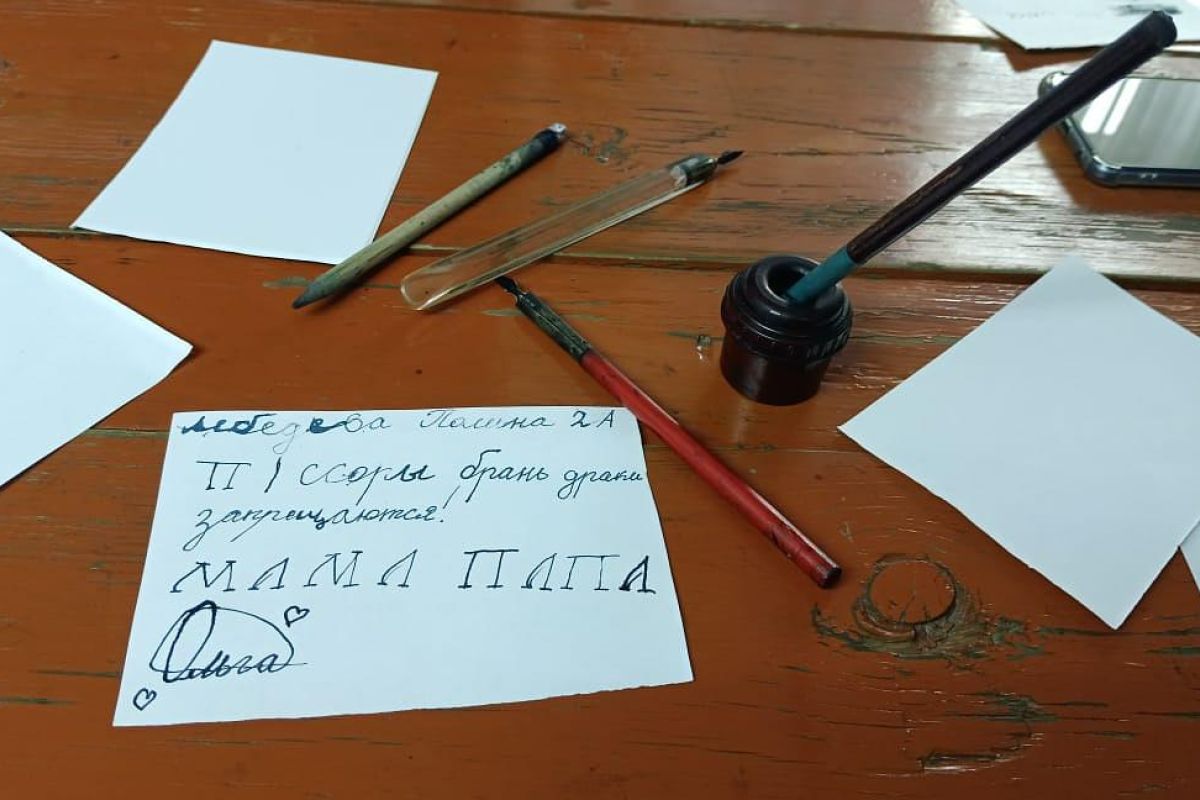 Лебедева Полина 2 А
П 1 Ссоры, брань драки
запрещаются!
МАМА ПАПА
Ольга